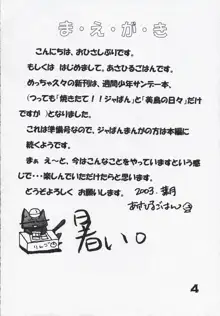 ま・え・が・き
こんにちは、おひさしぶりです。
もしくは はじめまして、あさひるごはんです。
めっちゃ久々の新刊は、週間少年サンデー本、
(つっても『焼きたて!!ジャぱん』と『美鳥の日々』だけ
ですが)となりました。
これは準備号なので、ジャぱんまんがの方は本編に
続くようです。
まぁ え~と、今はこんなことをやっていますという感
じで・・・楽しんでいただけたらと思います。
どうぞよろしく お願いします。
2003. 葉月
あさひるごはん
暑い。
りんご
4